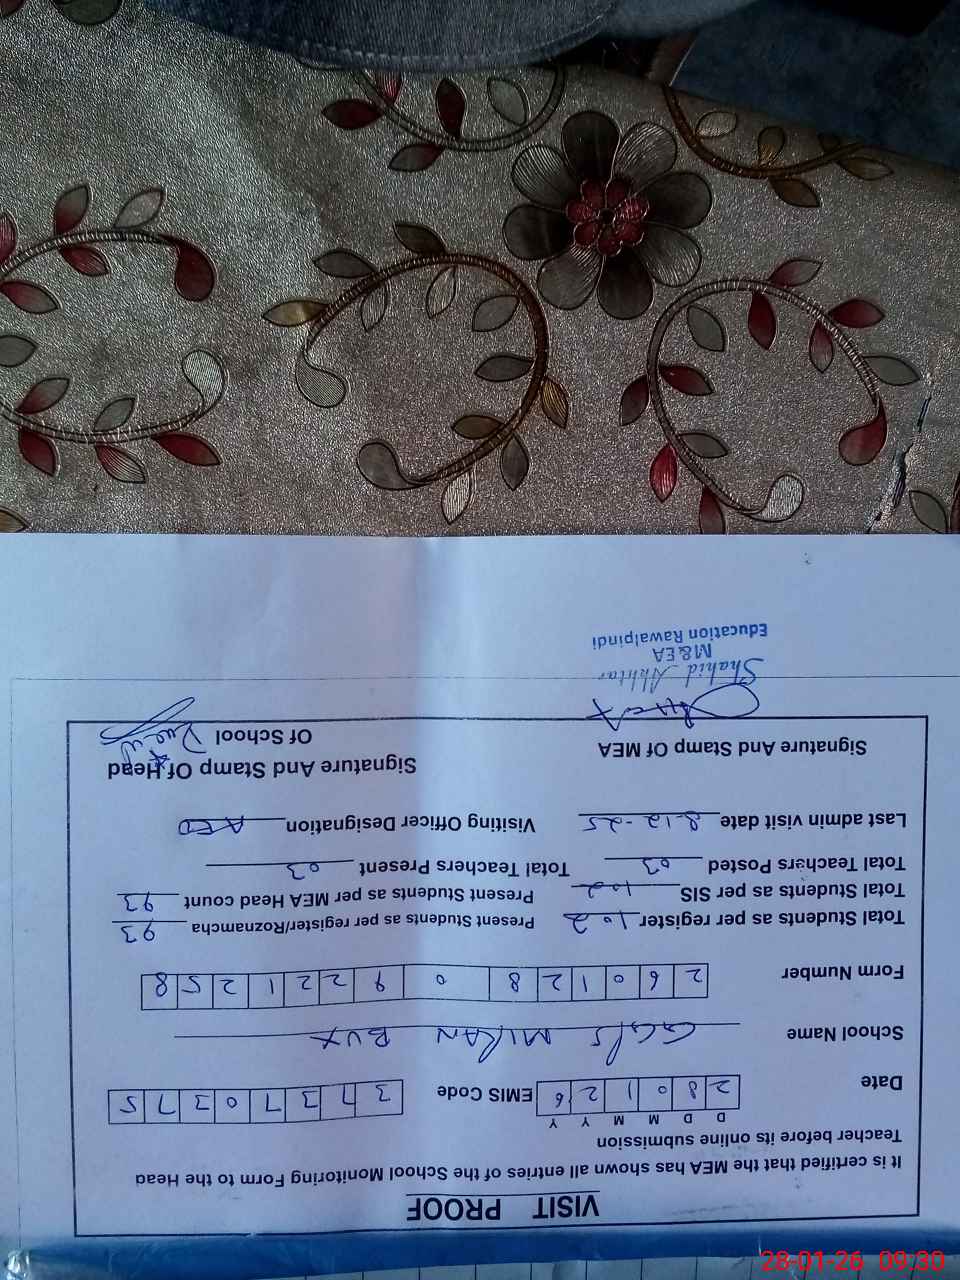 VISIT PROOF
It is certified that the MEA has shown all entries of the School Monitoring Form to the Head
Teacher before its online submission
D D M M Y Y
Date 2 8 0 1 2 6 EMIS Code 3 7 3 7 0 3 7 5
School Name GGPS MIRAN BUX
Form Number 2 6 0 1 2 8 0 9 2 2 1 2 5 8
Total Students as per register 102 Present Students as per register/Roznamcha 93
Total Students as per SIS 102 Present Students as per MEA Head count 93
Total Teachers Posted 03 Total Teachers Present 03
Last admin visit date 8-12-25 Visiting Officer Designation AEO
Signature And Stamp Of MEA Signature And Stamp Of Head
Of School
Shahid Akhtar
M&EA
Education Rawalpindi
28-01-26 09:30